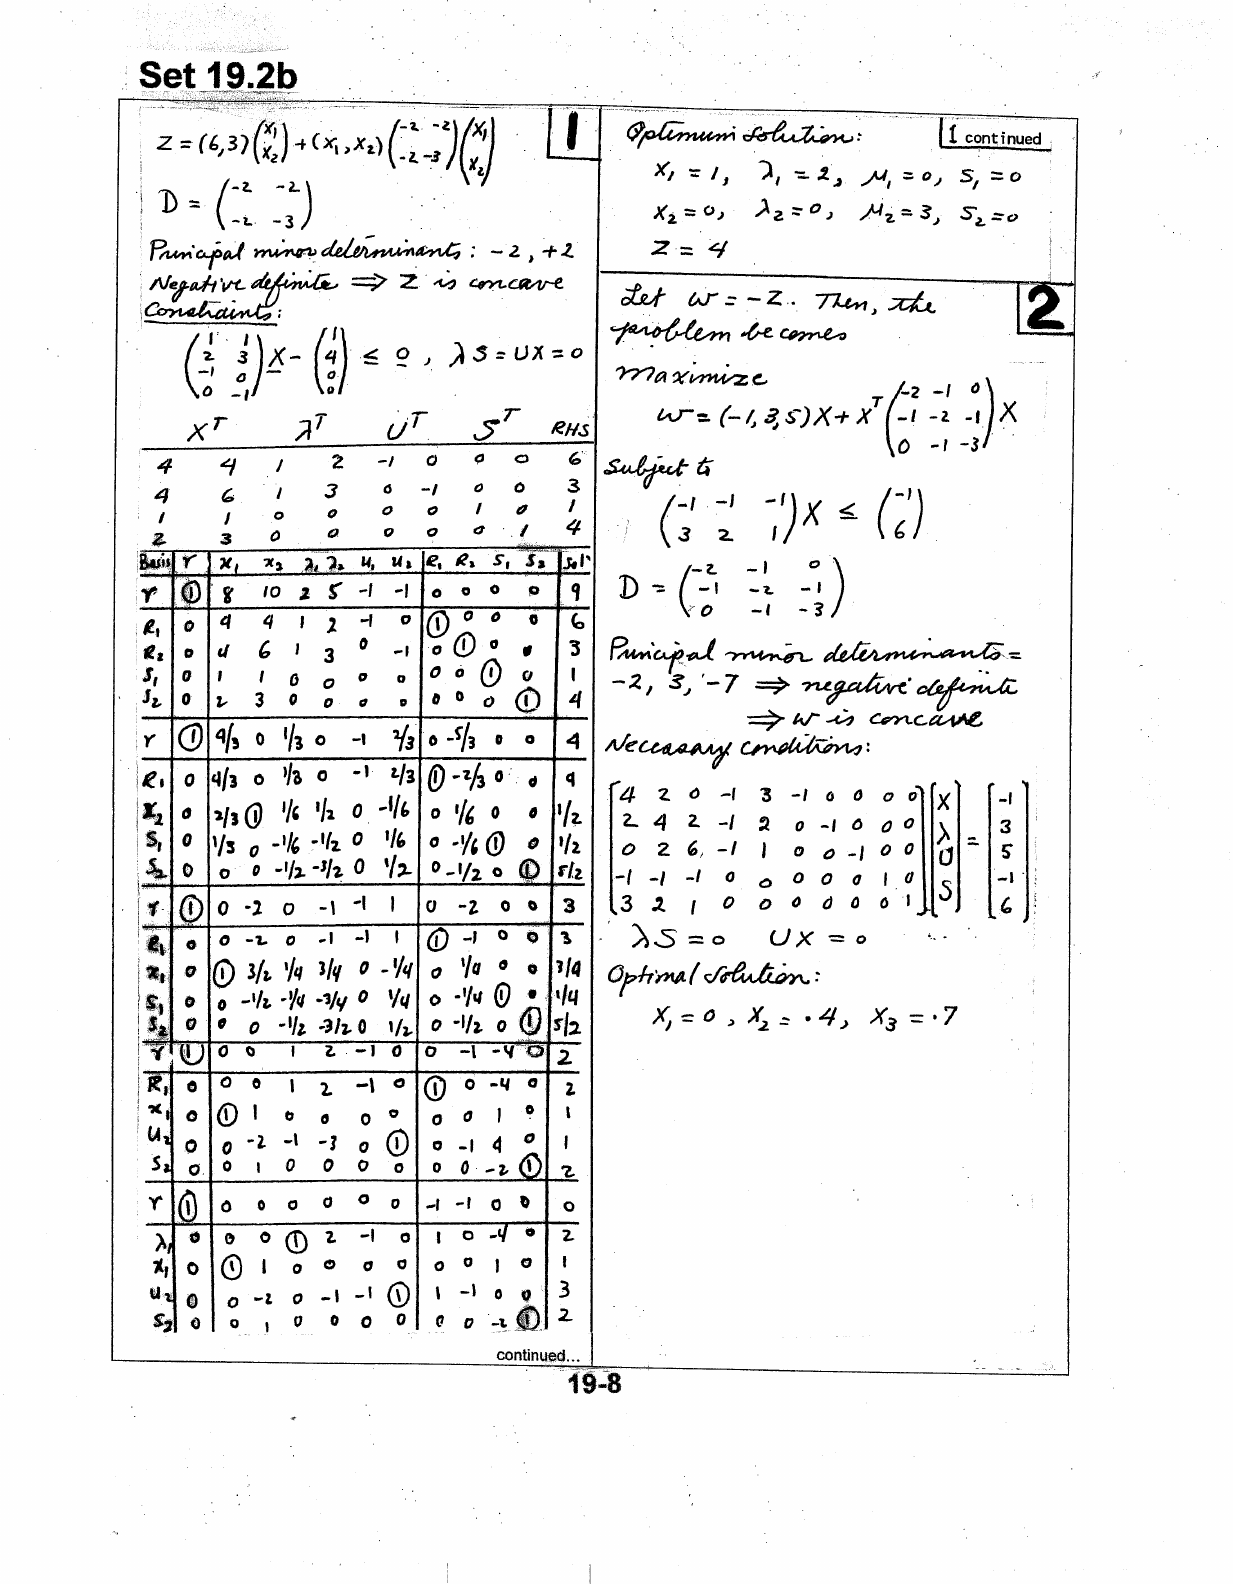 Set 19.2b
1
Z = (6,3) (X1 X2) + (X1, X2) (-2 -2 -2 -3) (X1 X2)
D = (-2 -2
-2 -3)
Principal minor determinants : -2 , +2
Negative definite ⇒ Z is concave
Constraints :
(1 1
2 3
-1 0
0 -1) X - (1 4 0 0) ≤ 0 , λS = UX = 0
X^T λ^T U^T S^T RHS
4 4 1 2 -1 0 0 0 6
4 6 1 3 0 -1 0 0 3
1 1 0 0 0 0 1 0 1
2 3 0 0 0 0 0 1 4
Basis r x1 x2 λ1 λ2 u1 u2 R1 R2 S1 S2 Sol'
r 1 8 10 2 5 -1 -1 0 0 0 0 9
R1 0 4 4 1 2 -1 0 1 0 0 0 6
R2 0 4 6 1 3 0 -1 0 1 0 0 3
S1 0 1 1 0 0 0 0 0 0 1 0 1
S2 0 2 3 0 0 0 0 0 0 0 1 4
r 1 4/3 0 1/3 0 -1 2/3 0 -5/3 0 0 4
R1 0 4/3 0 1/3 0 -1 2/3 1 -2/3 0 0 4
X2 0 2/3 1 1/6 1/2 0 -1/6 0 1/6 0 0 1/2
S1 0 1/3 0 -1/6 -1/2 0 1/6 0 -1/6 1 0 1/2
S2 0 0 0 -1/2 -3/2 0 1/2 0 -1/2 0 1 5/2
r 1 0 -2 0 -1 -1 1 0 -2 0 0 3
R1 0 0 -2 0 -1 -1 1 1 -1 0 0 3
x1 0 1 3/2 1/4 3/4 0 -1/4 0 1/4 0 0 3/4
S1 0 0 -1/2 -1/4 -3/4 0 1/4 0 -1/4 1 0 1/4
S2 0 0 0 -1/2 -3/2 0 1/2 0 -1/2 0 1 5/2
r 1 0 0 1 2 -1 0 0 -1 -4 0 2
R1 0 0 0 1 2 -1 0 1 0 -4 0 2
x1 0 1 1 0 0 0 0 0 0 1 0 1
U2 0 0 -2 -1 -3 0 1 0 -1 4 0 1
S2 0 0 1 0 0 0 0 0 0 -2 1 2
r 1 0 0 0 0 0 0 -1 -1 0 0 0
λ1 0 0 0 1 2 -1 0 1 0 -4 0 2
x1 0 1 1 0 0 0 0 0 0 1 0 1
u2 0 0 -2 0 -1 -1 1 1 -1 0 0 3
S2 0 0 1 0 0 0 0 0 0 -2 1 2
continued...
Optimum solution : 1 continued
X1 = 1, λ1 = 2, μ1 = 0, S1 = 0
X2 = 0, λ2 = 0, μ2 = 3, S2 = 0
Z = 4
2
Let w = -Z. Then, the
problem becomes
maximize
w = (-1, 3, 5)X + X^T (-2 -1 0
-1 -2 -1
0 -1 -3) X
Subject to
(-1 -1 -1
3 2 1) X ≤ (-1 6)
D = (-2 -1 0
-1 -2 -1
0 -1 -3)
Principal minor determinants =
-2, 3, -7 ⇒ negative definite
⇒ w is concave
Necessary conditions :
4 2 0 -1 3 -1 0 0 0 0 X -1
2 4 2 -1 2 0 -1 0 0 0 λ 3
0 2 6, -1 1 0 0 -1 0 0 U = 5
-1 -1 -1 0 0 0 0 0 1 0 S -1
3 2 1 0 0 0 0 0 0 1 6
λS = 0 UX = 0
Optimal solution :
X1 = 0 , X2 = .4 , X3 = .7
19-8